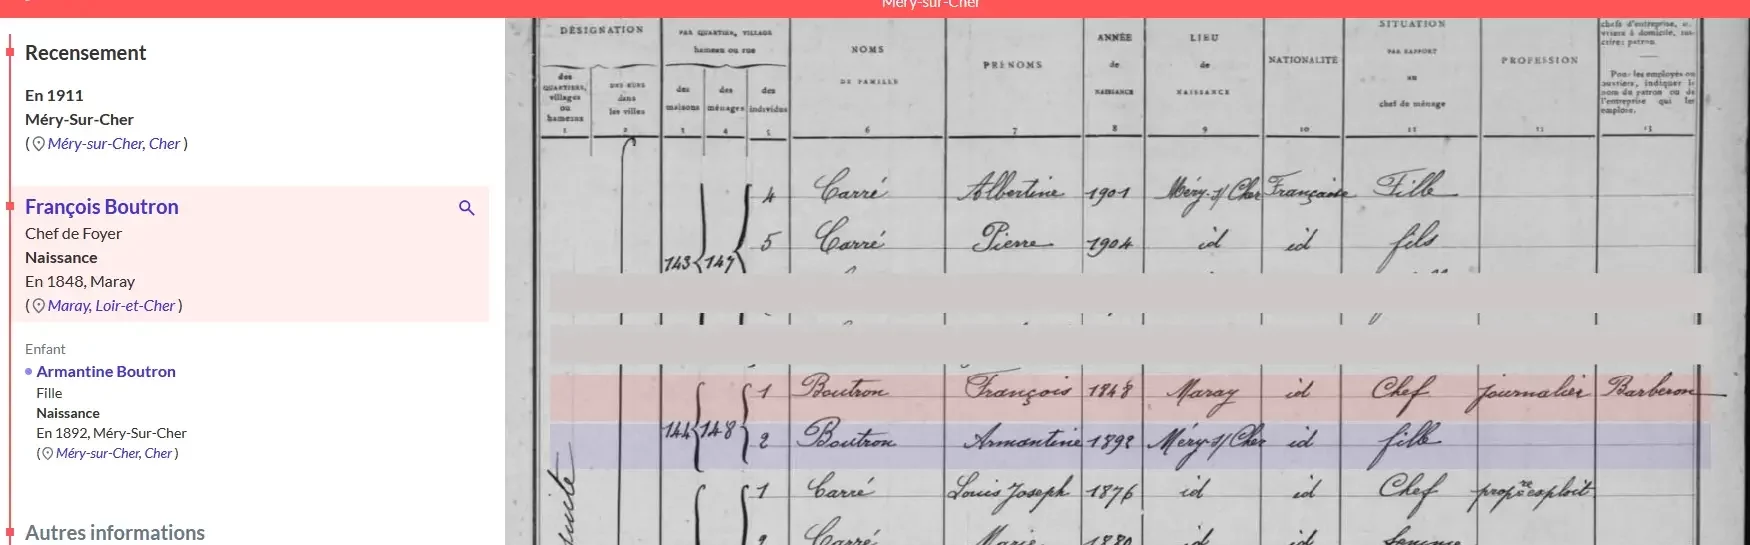 Méry-sur-Cher
Recensement
En 1911
Méry-Sur-Cher
( Méry-sur-Cher, Cher )
François Boutron
Chef de Foyer
Naissance
En 1848, Maray
( Maray, Loir-et-Cher )
Enfant
Armantine Boutron
Fille
Naissance
En 1892, Méry-Sur-Cher
( Méry-sur-Cher, Cher )
Autres informations
DÉSIGNATION
des QUARTIERS, villages ou hameaux
1
DES RUES dans les villes
2
PAR QUARTIER, VILLAGE hameau ou rue
des maisons
3
des ménages
4
des individus
5
NOMS DE FAMILLE
6
PRÉNOMS
7
ANNÉE de NAISSANCE
8
LIEU de NAISSANCE
9
NATIONALITÉ
10
SITUATION PAR RAPPORT au chef de ménage
11
PROFESSION
12
chefs d'entreprise,
patron.
Pour les employés ou
ouvriers, indiquer le
nom du patron ou de
l'entreprise qui les
emploie.
13
4 Carré Albertine 1901 Méry-s/Cher Française Fille
5 Carré Pierre 1904 id id fils
143 147
1 Boutron François 1848 Maray id Chef journalier Barberon
144 148
2 Boutron Armantine 1892 Méry-s/Cher id fille
1 Carré Louis Joseph 1876 id id Chef propre exploit
2 Carré Marie 1880 id id femme